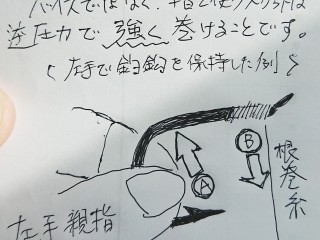 バイスではなく、指で使う
逆圧力で強く巻けることです。
(左手で釣鈎を保持した例)
B
根巻糸
A
左手親指